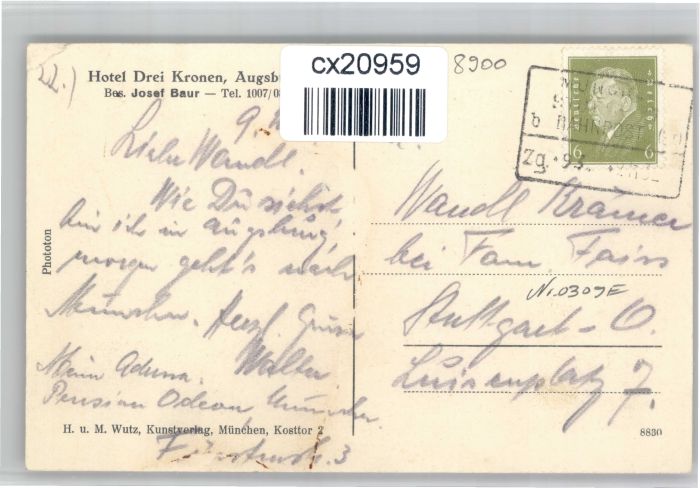 22.)
Hotel Drei Kronen, Augsb
Bes. Josef Baur — Tel. 1007/08
cx20959
8900
9.
Liebe Wandl.
Wie Du siehst
bin ich in Augsburg,
morgen geht's nach
München. Herzl. Grüsse
Walter
Meine Adresse.
Pension Odeon, München
3
Phototon
H. u. M. Wutz, Kunstverlag, München, Kosttor 2
DEUTSCHES REICH
6 6
b BAHNPOST
Zg.
Wandl Krämer
bei Fam. Faiss
No 0309E
Stuttgart-O.
Luisenplatz 7.
8830